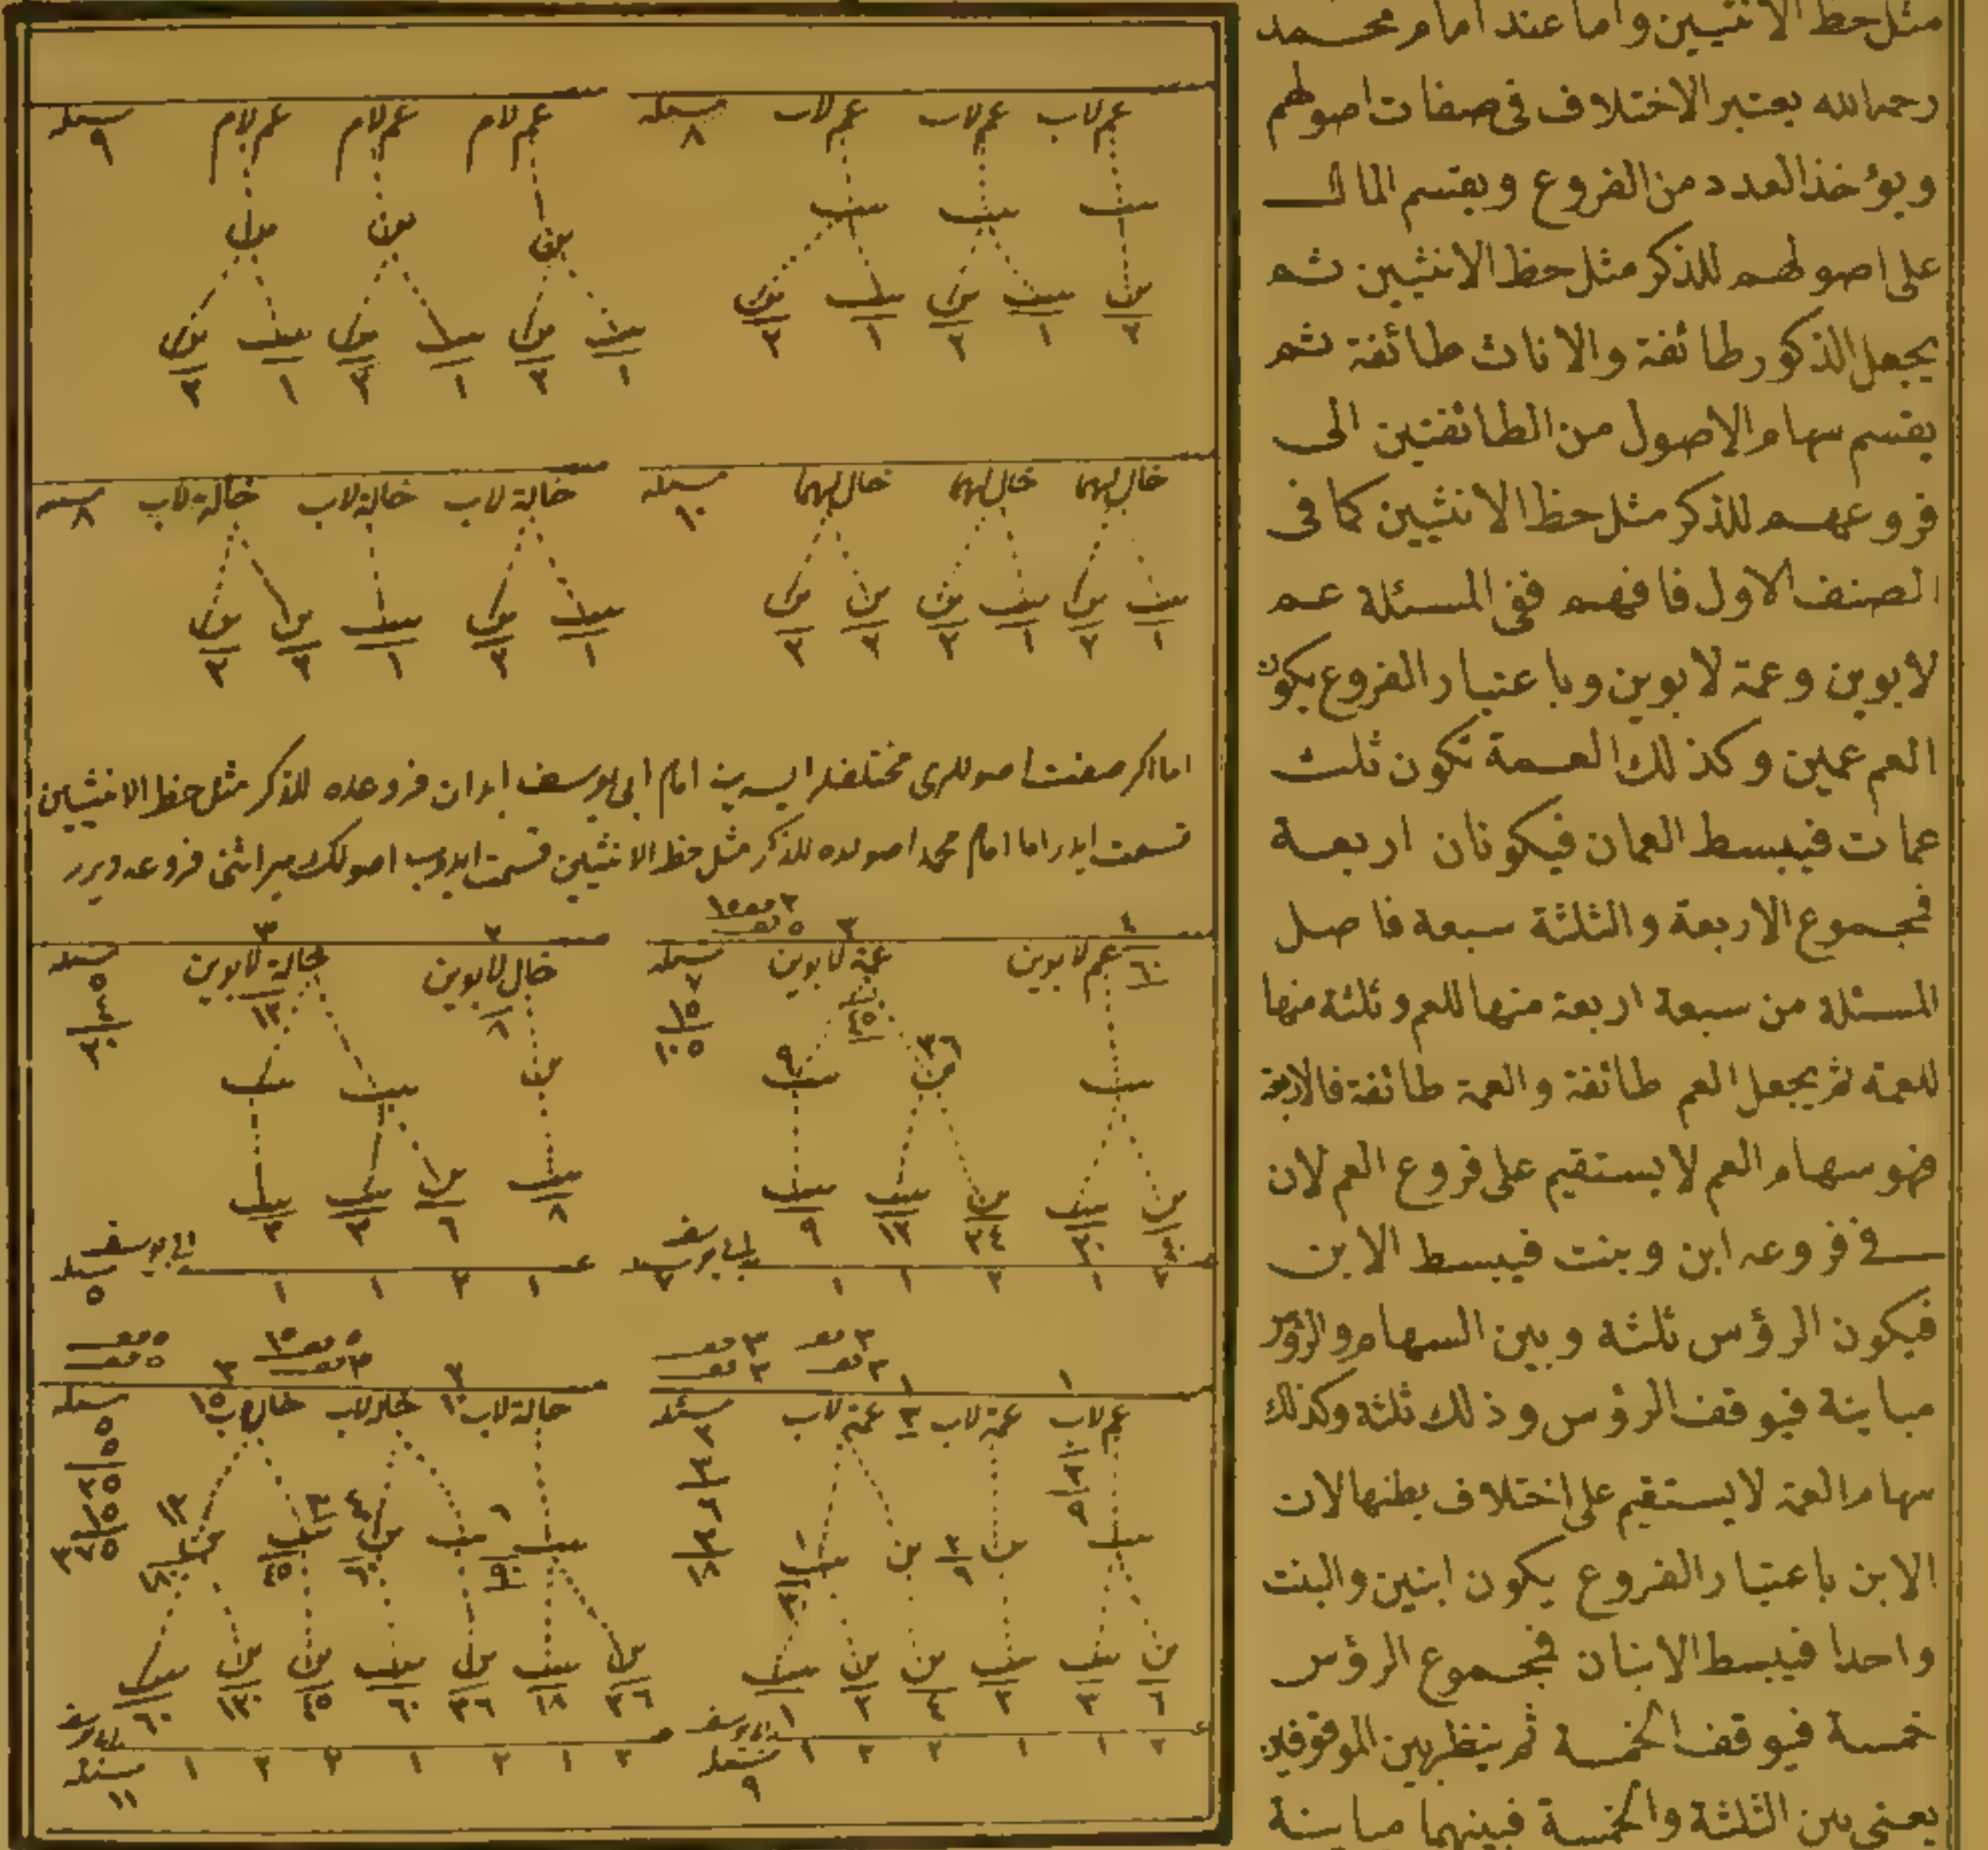 مثل حظ الانثيين واما عند امام محمد
رحمه الله يعتبر الاختلاف فى صفات اصولهم
ويؤخذ العدد من الفروع ويقسم المال
على اصولهم للذكر مثل حظ الانثيين ثم
يجعل الذكور طائفة والاناث طائفة ثم
يقسم سهام الاصول من الطائفتين الى
فروعهم للذكر مثل حظ الانثيين كما فى
الصنف الاول فافهم ففى المسئلة عم
لابوين وعمة لابوين وباعتبار الفروع يكون
العم عمين وكذلك العمة تكون ثلث
عمات فيبسط العمان فيكونان اربعة
فمجموع الاربعة والثلثة سبعة فاصل
المسئلة من سبعة اربعة منها للعم وثلثة منها
للعمة ثم يجعل العم طائفة والعمة طائفة فالاربعة
هو سهام العم لا يستقيم على فروع العم لان
فى فروعه ابن وبنت فيبسط الابن
فيكون الرؤس ثلثة وبين السهام والرؤس
مباينة فيوقف الرؤس وذلك ثلثة وكذلك
سهام العمة لا يستقيم على اختلاف بطنها لان
الابن باعتبار الفروع يكون ابنين والبنت
واحدا فيبسط الابنان فمجموع الرؤس
خمسة فيوقف الخمسة ثم ينظر بين الموقوفين
يعنى بين الثلثة والخمسة فبينهما مباينة
عم لاب عم لاب عم لاب مسئله ٨
بنت بنت بنت
بن بنت بن بنت بن
٢ ١ ٢ ١ ٢
عم لام عم لام عم لام مسئله ٩
بن بن بن
بنت بن بنت بن بنت بن
١ ٢ ١ ٢ ١ ٢
خال لهما خال لهما خال لهما مسئله ١٠
بنت بن بنت بن بن بن
١ ٢ ١ ٢ ٢ ٢
خالة لاب خالة لاب خالة لاب ٨
بنت بن بنت بن بن
١ ٢ ١ ٢ ٢
اما اكر صفت اصوللرى مختلفلر ايسه امام ابى يوسف ابدان فروعده للذكر مثل حظ الانثيين
قسمت ايدر اما امام محمد اصولده للذكر مثل حظ الانثيين قسمت ايدوب اصولك ميراثنى فروعه ويرر
٤ ٣
عم لابوين ٦٠ عمة لابوين ٤٥ مسئله ٧ ١٥ ١٠٥
بنت بن ٣٦ بنت ٩
بن بنت بن بنت بنت
٤٠ ٢٠ ٢٤ ١٢ ٩
ابى يوسف
٢ ١ ٢ ١ ١ ٧
٢ ٣
خال لابوين ٨ خالة لابوين ١٢ مسئله ٥ ٤ ٢٠
بن بنت بنت
بنت بن بنت بنت
٨ ٦ ٣ ٣
ابى يوسف
١ ٢ ١ ١ مسئله ٥
عم لاب عمة لاب عمة لاب مسئله ٢ ٣ ٦ ٣ ١٨
بنت بن بن بنت
بن بنت بنت بن بن بنت
٦ ٣ ٢ ٤ ٢ ١
٢ ١ ١ ٢ ٢ ١ مسئله ٩
خالة لاب خال لاب
بنت ٩٠ بنت بن ٦٠ بنت ٤٥ بن ١٨٠
بن بنت بن بنت بن بن بنت
٣٦ ١٨ ٣٦ ٦٠ ٤٥ ١٢٠ ٦٠
٢ ١ ٢ ١ ٢ ٢ ١ مسئله ١١